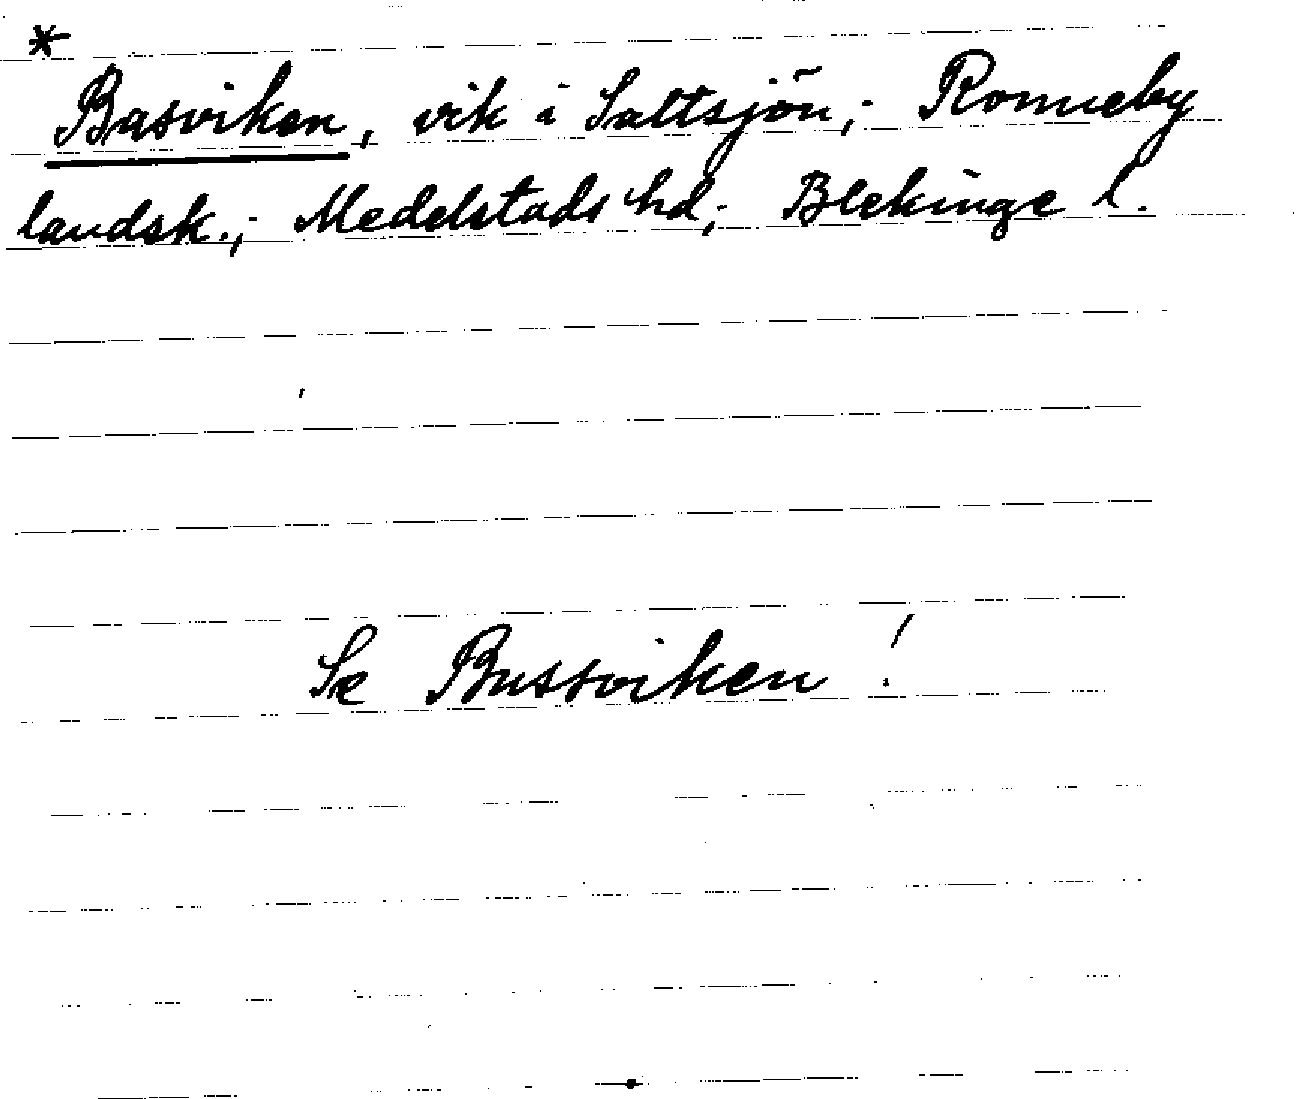 *
Basviken, vik i Saltsjön; Ronneby
landsk.; Medelstads hd; Blekinge l.
Se Bussviken!